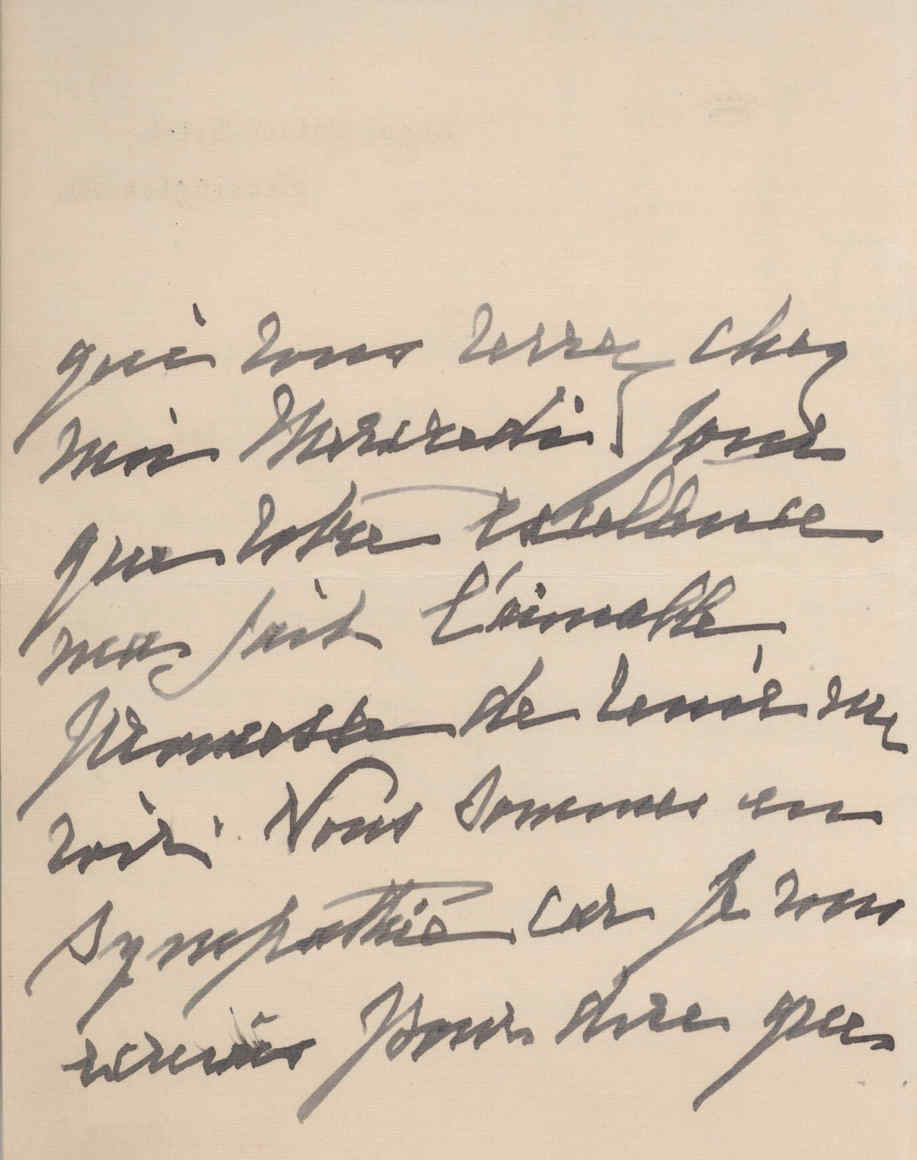 qui vous verrez chez
moi Mercredi. Jour
que votre excellence
ma fait l'aimable
promesse de venir me
voir. Nous sommes en
sympathie car je vous
écrivais pour dire que